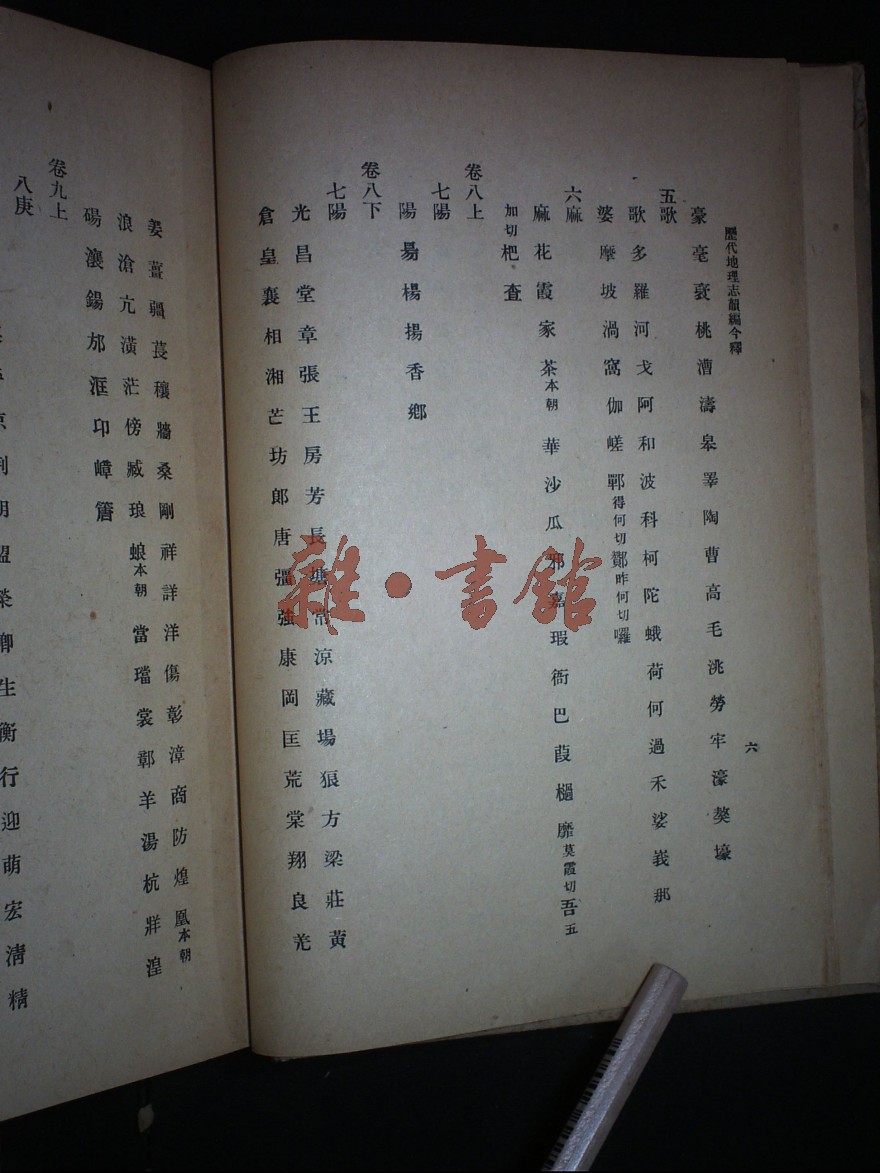 歷代地理志韻編今釋
六
豪亳裦桃漕濤皋睪陶曹高毛洮勞牢濠獒壕
五歌
歌多羅河戈阿和波科柯陀蛾荷何過禾娑峩那
婆摩坡渦窩伽嵯鄲得何切酇昨何切囉
六麻
麻花霞家茶本朝華沙瓜邪嘉瑕衙巴葭檛靡莫霞切吾五
加切杷査
卷八上
七陽
陽昜楊揚香鄉
卷八下
七陽
光昌堂章張王房芳長塘常涼藏場狼方梁莊黃
倉皇襄相湘芒坊郎唐彊強康岡匡荒棠翔良羌
姜薑疆萇穰牆桑剛祥詳洋傷彰漳商防煌凰本朝
浪滄亢潢茫傍臧琅蜋本朝當璫裳鄣羊湯杭牂湟
碭瀼鍚邡洭卬嶂簹
卷九上
八庚
明盟榮卿生衡行迎萌宏淸精
雜·書館